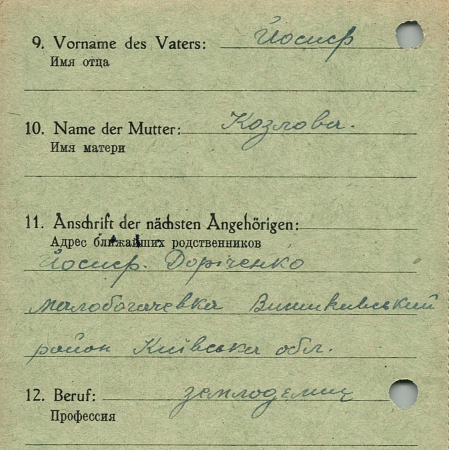 9. Vorname des Vaters: Йосиф
Имя отца
10. Name der Mutter: Козлова.
Имя матери
11. Anschrift der nächsten Angehörigen:
Адрес ближайших родственников
Йосиф. Доріченко
малобогачевка
район Київська обл.
12. Beruf: землоделиц
Профессия